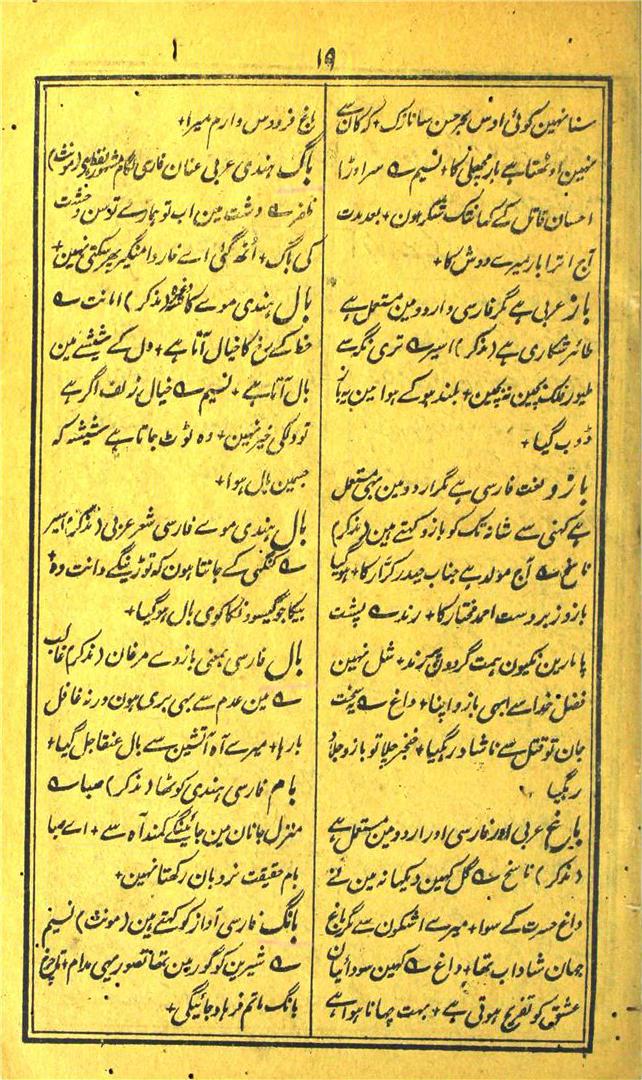 ۱۹
۱
سنا نہین کوئی اوس کمر حسن سا نازک + کہ کان سے
نہین اوٹھتا ہے بار مچھلی کا + نسیم ے سر اوڑا
احسان قاتل کے کہانتک شکر ہون + بعد مدت
آج اترا بار میرے دوش کا +
باز عربی ہے مگر فارسی و اردو مین مستعمل ہے
طائر شکاری ہے (مذکر) اسیر ے تری نگہ سے
طیور فلک بچین نہ بچین + بلند ہوکے ہوا مین یہ باز
ڈوب گیا +
بازو لغت فارسی ہے مگر اردو مین بہی مستعمل
ہے کہنی سے شانہ تک کو بازو کہتے ہین (مذکر)
ناسخ ے آج مولد ہے جناب حیدر کرّار کا + ہوگیا
بازو زبردست احمد مختار کا + رند ے پشت
پا مارین نکیون ہمت گردون پر رند + شل نہین
فضل خدا سے ابہی بازو اپنا + داغ ے سخت
جان تو قتل سے ناشاد رہگیا + خنجر چلا تو بازوے جلاد
رہگیا
باغ عربی اور فارسی اور اردو مین مستعمل ہے
(مذکر) ناسخ ے گل کہین دیکہا نہ مین نے
داغ حسرت کے سوا + میرے اشکون سے گر باغ
جہان شاداب تھا + داغ ے کہین سودائیان
عشق کو تفریح ہوتی ہے + بہت چہانا ہوا ہے
باغ فردوس وارم میرا +
باگ ہندی عربی عنان فارسی لگام مشہور لفظ ہے (مونث)
ظفر ے دشت مین اب تو ہمارے توسن وحشت
کی باگ + اُٹھ گئی اے خار دامنگیر پہر سکتی نہین +
بال ہندی موے کا (مذکر) امانت ے
خط کے رخ کا خیال آتا ہے + دل کے شیشے مین
بال آتا ہے + نسیم ے خیال زلف اگر ہے
تو دلکی خیر نہین + وہ ٹوٹ جاتا ہے شیشہ کہ
جسمین بال ہوا +
بال ہندی موے فارسی شعر عربی (مذکر) اسیر
ے کنگھی کے جانتا ہون کہ توڑینگے دانت وہ +
بیکا جو گیسوؤنکا کوی بال ہوگیا +
بال فارسی بمعنی بازوے مرغان (مذکر) غالب
ے مین عدم سے بہی پری ہون ورنہ غافل
بارہا + میرے آہ آتشین سے بال عنقا جل گیا +
بام فارسی ہندی کوٹھا (مذکر) صبا ے
منزل جانان مین جائینگے کمند آہ سے + اے صبا
بام حقیقت نردبان رکھتا نہین +
بانگ فارسی آواز کو کہتے ہین (مونث) نسیم
ے شیرین کو گور مین تھا تصور یہی مدام + تا چرخ
بانگ ماتم فرہاد جائیگی +